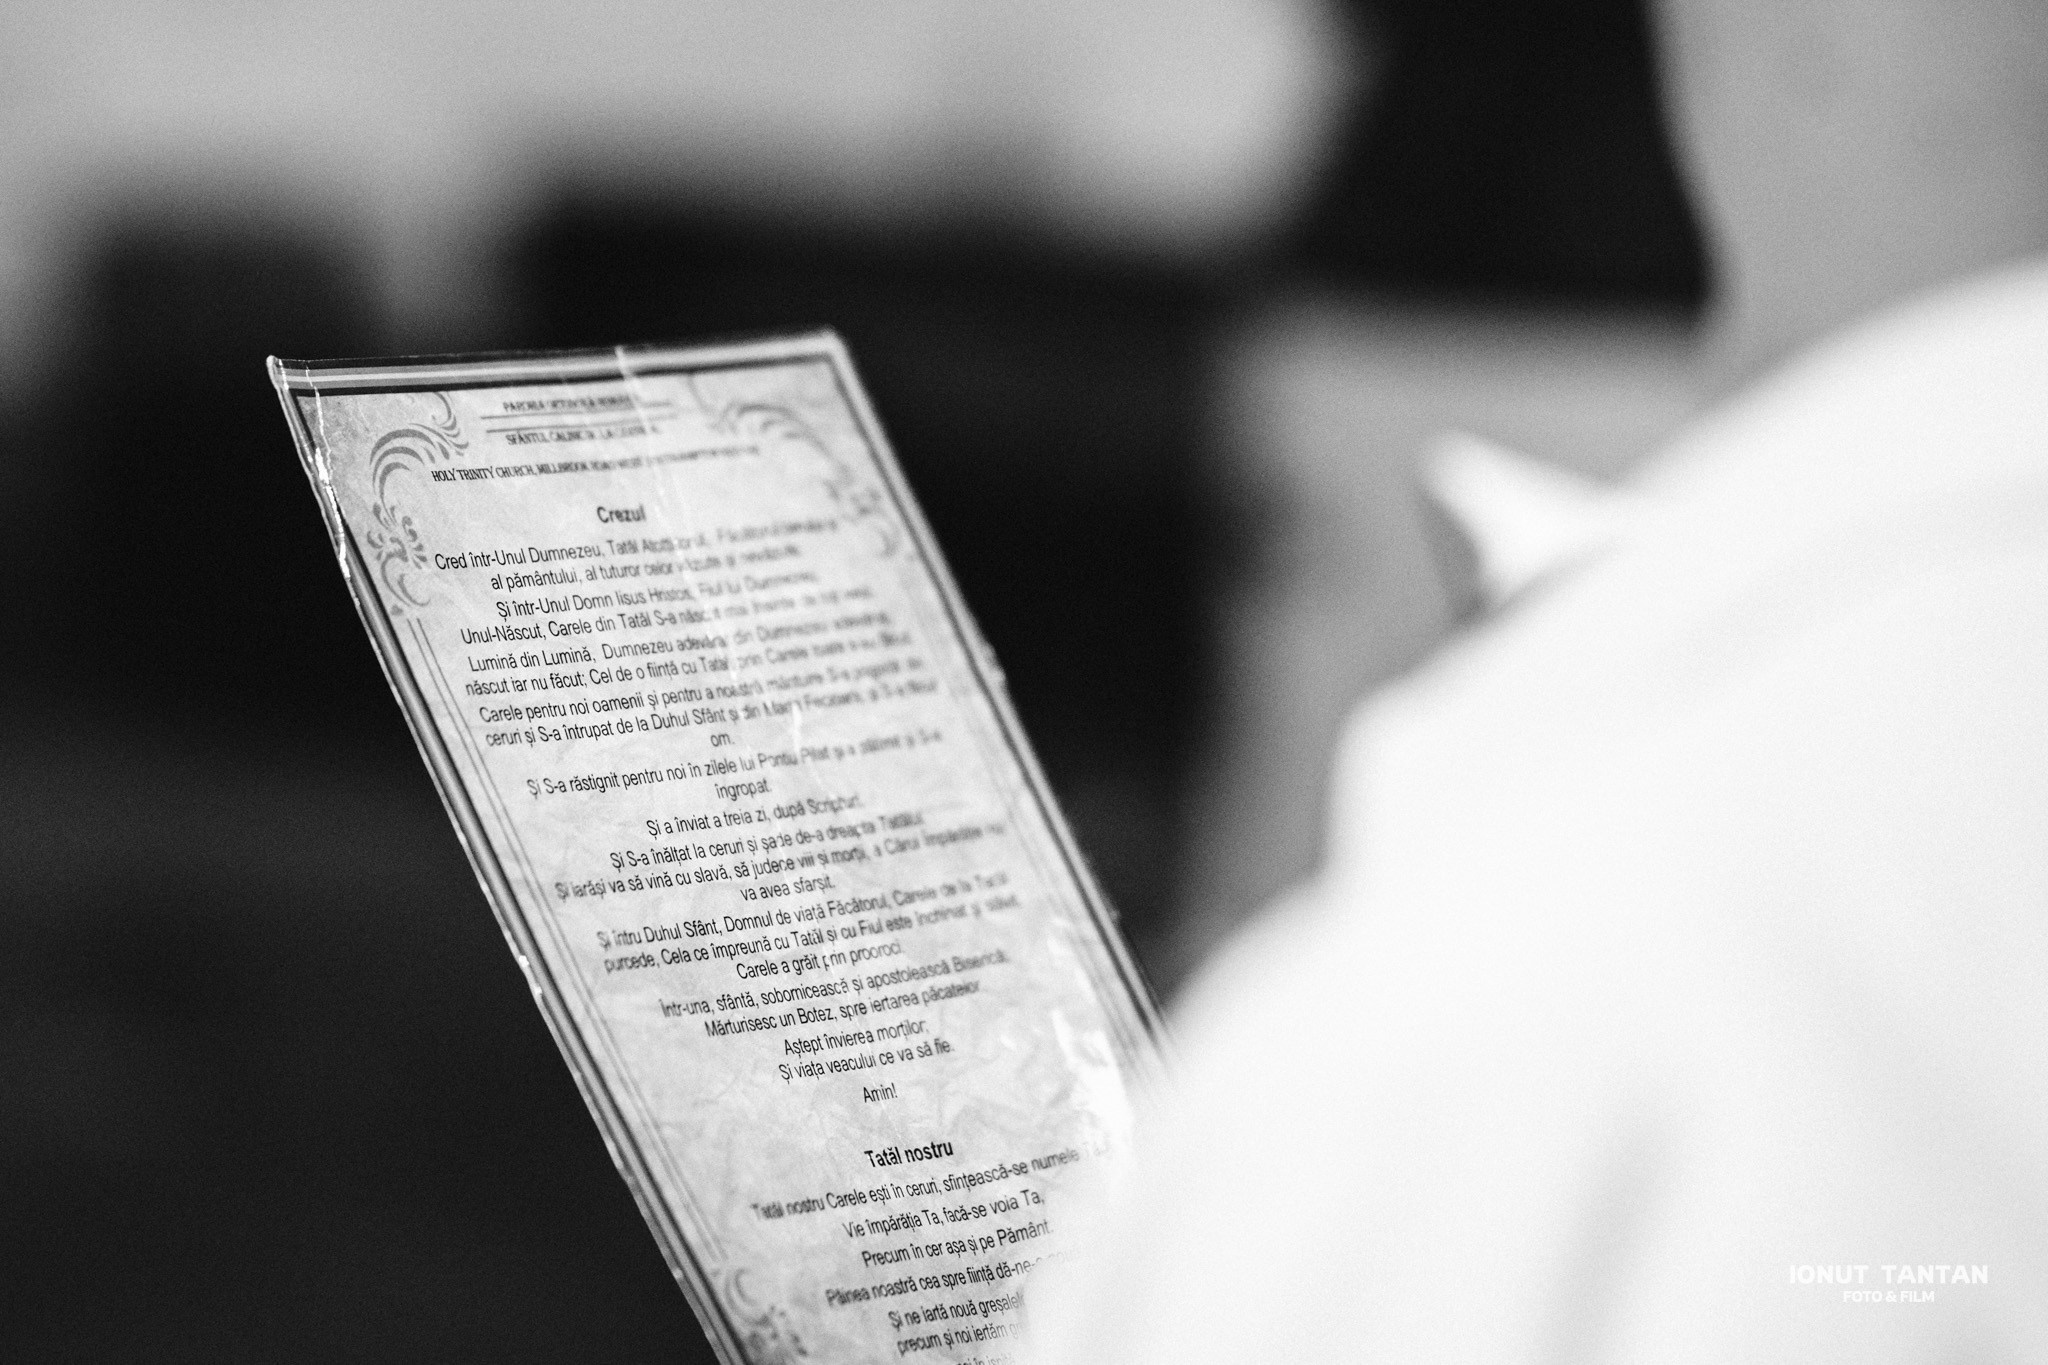 PAROHIA ORTODOXĂ
SFÂNTUL CALINIC DE LA CERNICA
HOLY TRINITY CHURCH, MILLBROOK ROAD WEST
Crezul
Cred într-Unul Dumnezeu, Tatăl Atotțiitorul, Făcătorul cerului și
al pământului, al tuturor celor văzute și nevăzute.
Și într-Unul Domn Iisus Hristos, Fiul lui Dumnezeu,
Unul-Născut, Carele din Tatăl S-a născut mai înainte de toți vecii;
Lumină din Lumină, Dumnezeu adevărat din Dumnezeu adevărat,
născut iar nu făcut; Cel de o ființă cu Tatăl, prin Carele toate s-au făcut.
Carele pentru noi oamenii și pentru a noastră mântuire S-a pogorât din
ceruri și S-a întrupat de la Duhul Sfânt și din Maria Fecioara, și S-a făcut
om.
Și S-a răstignit pentru noi în zilele lui Pontiu Pilat și a pătimit și S-a
îngropat.
Și a înviat a treia zi, după Scripturi.
Și S-a înălțat la ceruri și șade de-a dreapta Tatălui.
Și iarăși va să vină cu slavă, să judece viii și morții, a Cărui Împărăție nu
va avea sfarșit.
Și întru Duhul Sfânt, Domnul de viață Făcătorul, Carele de la Tatăl
purcede, Cela ce împreună cu Tatăl și cu Fiul este închinat și slăvit,
Carele a grăit prin prooroci.
Într-una, sfântă, sobornicească și apostolească Biserică;
Mărturisesc un Botez, spre iertarea păcatelor
Aștept învierea morților;
Și viața veacului ce va să fie.
Amin!
Tatăl nostru
Tatăl nostru Carele ești în ceruri, sfințească-se numele
Vie împărăția Ta, facă-se voia Ta,
Precum în cer așa și pe Pământ.
Pâinea noastră cea spre ființă dă-ne-
Și ne iartă nouă greșalele
precum și noi iertăm
IONUT TANTAN
FOTO & FILM